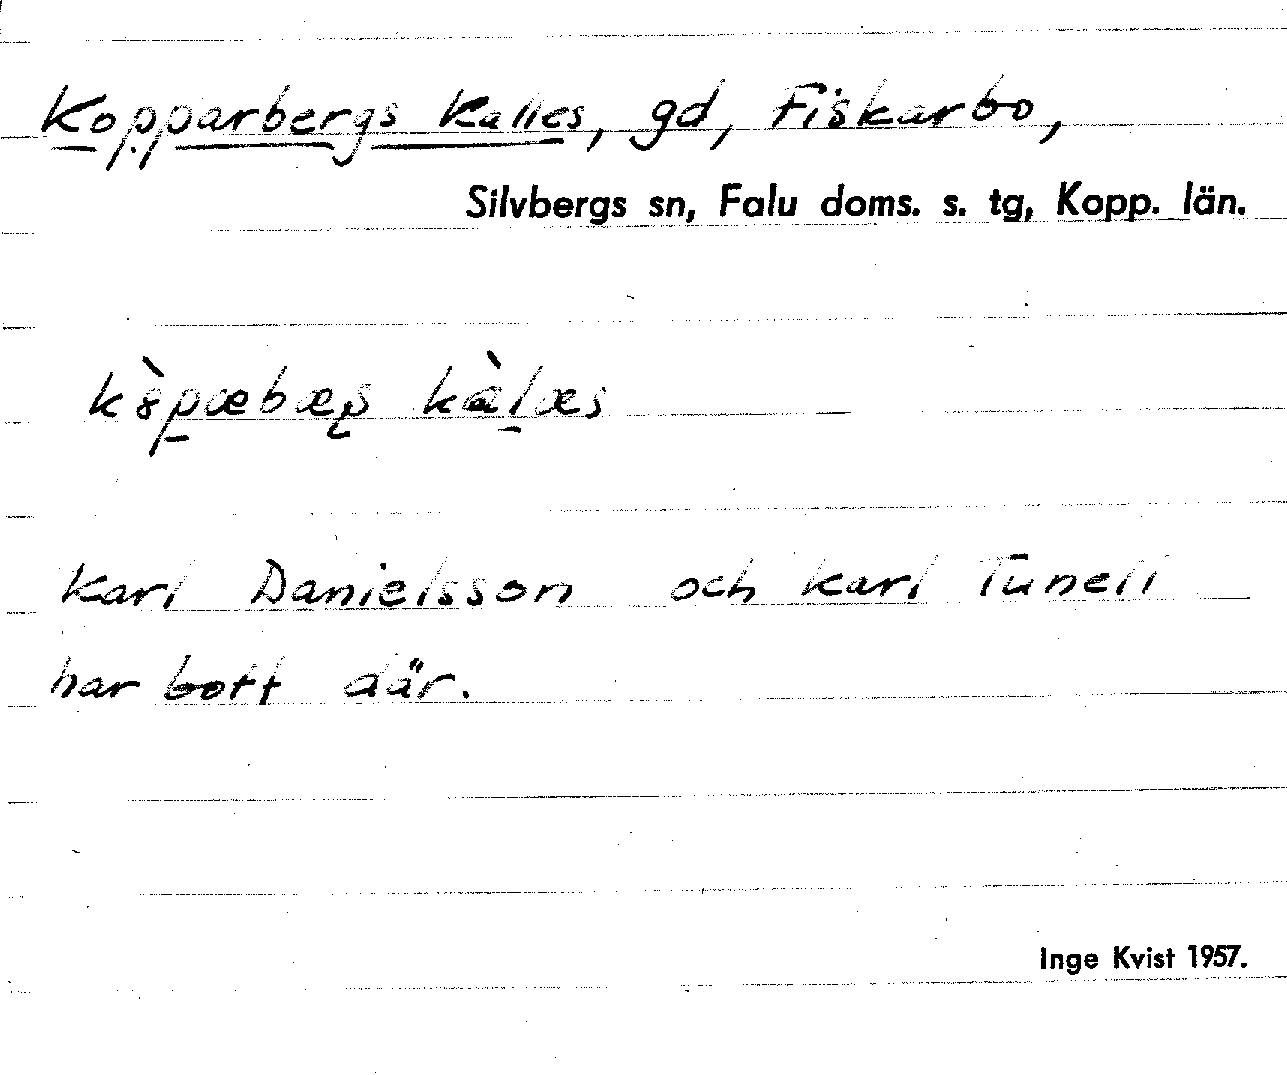 Kopparbergs Kalles, gd, Fiskarbo,
Silvbergs sn, Falu doms. s. tg, Kopp. län.
Karl Danielsson och Karl Tunell
har bott där.
Inge Kvist 1957.